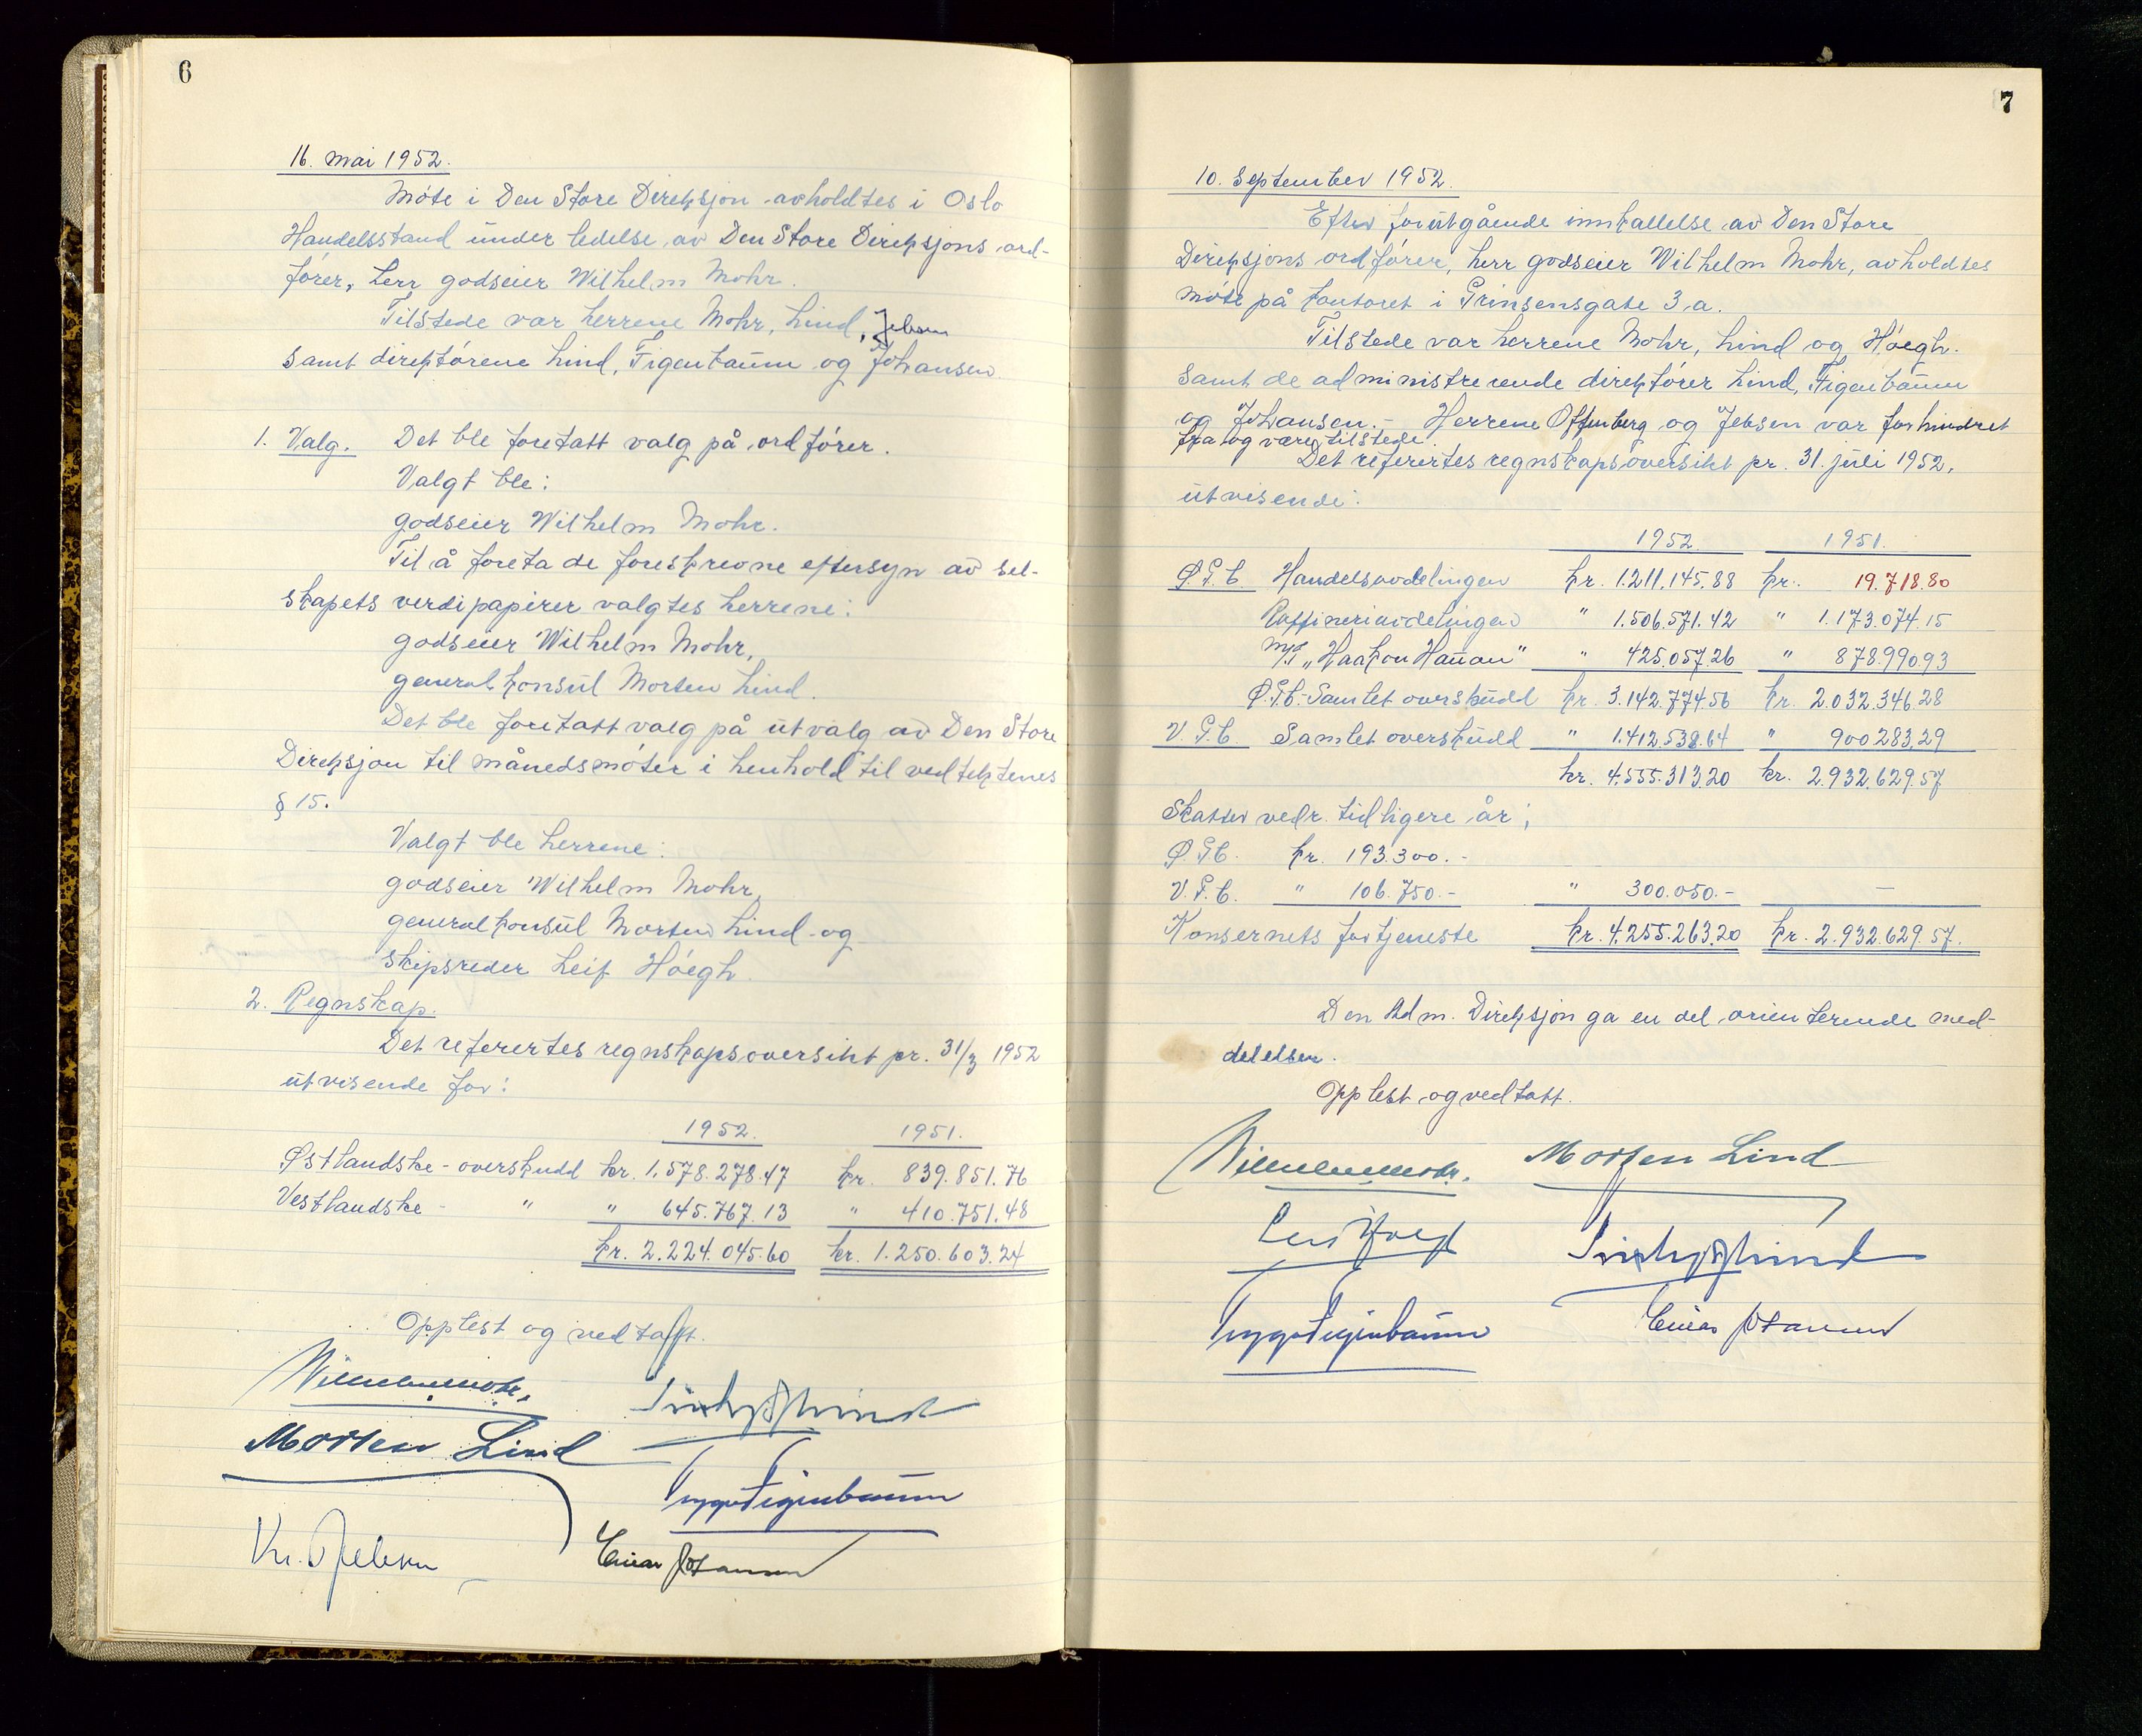 6
16. mai 1952.
Møte i Den Store Direksjon avholdtes i Oslo
Handelsstand under ledelse av Den Store Direksjons ord-
fører, herr godseier Wilhelm Mohr.
Tilstede var herrene Mohr, Lind, Jebsen
samt direktørene Lind, Figenbaum og Johansen
1. Valg. Det ble foretatt valg på ordfører.
Valgt ble:
godseier Wilhelm Mohr.
Til å foreta de foreskrevne eftersyn av sel-
skapets verdipapirer valgtes herrene:
godseier Wilhelm Mohr,
generalkonsul Morten Lind.
Det ble foretatt valg på utvalg av Den Store
Direksjon til månedsmøter i henhold til vedtektenes
§ 15.
Valgt ble herrene:
godseier Wilhelm Mohr,
generalkonsul Morten Lind og
skipsreder Leif Høegh.
2. Regnskap.
Det refertes regnskapsoversikt pr. 31/3 1952
utvisende for:
1952. 1951.
Østlandske - overskudd kr. 1.578.278.47 kr. 839.851.76
Vestlandske - " " 645.767.13 " 410.751.48
kr. 2.224.045.60 kr. 1.250.603.24
Opplest og vedtatt.
Wilhelm Mohr.
Morten Lind
Kr. Jebsen
Trygve Figenbaum
Einar Johansen
7
10. September 1952.
Efter forutgående innkallelse av Den Store
Direksjons ordfører, herr godseier Wilhelm Mohr, avholdtes
møte på kontoret i Prinsensgate 3.a.
Tilstede var herrene Mohr, Lind og Høegh.
samt de administrerende direktører Lind, Figenbaum
og Johansen. - Herrene Offenberg og Jebsen var forhindret
fra og være tilstede.
Det refertes regnskapsoversikt pr. 31. juli 1952,
utvisende:
1952. 1951.
Ø.P.C. Handelsavdelingen kr. 1.211.145.88 kr. 19.718.80
Raffineriavdelingen " 1.506.571.42 " 1.173.074.15
M/T „Haakon Hauan" " 425.057.26 " 878.990.93
Ø.P.C. Samlet overskudd kr. 3.142.774.56 kr. 2.032.346.28
V.P.C. Samlet overskudd " 1.412.538.64 " 900.283.29
kr. 4.555.313.20 kr. 2.932.629.57
Skatter vedr. tidligere år;
Ø.P.C. kr. 193.300.-
V.P.C. " 106.750.- " 300.050.- -
Konsernets fortjeneste kr. 4.255.263.20 kr. 2.932.629.57.
Den Adm. Direksjon ga en del orienterende med-
delelser.
Opplest og vedtatt.
Wilhelm Mohr. Morten Lind
Leif Høegh
Trygve Figenbaum Einar Johansen